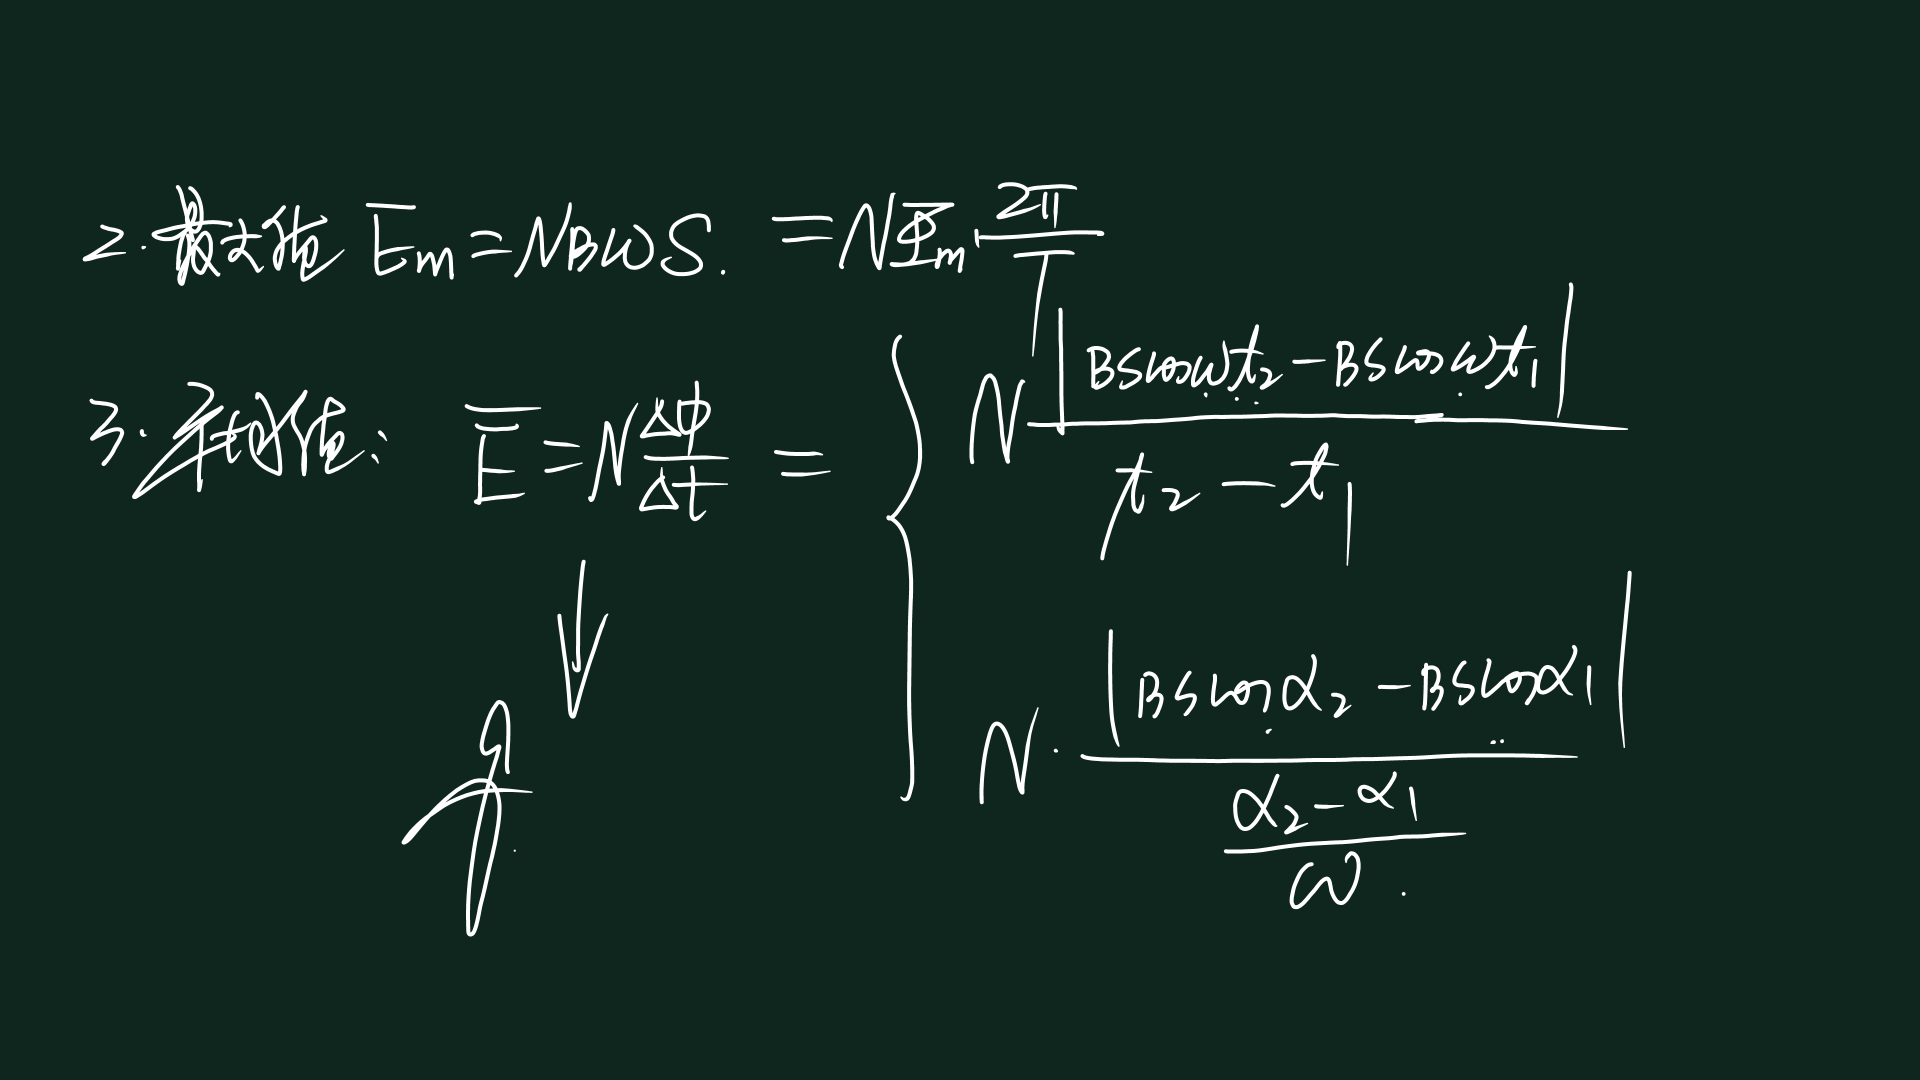 2. 最大值 Em = NBωS. = NΦm·2π/T
3. 平均值: E̅ = N ΔΦ/Δt = { N |BScosωt₂ - BScosωt₁| / (t₂ - t₁)
N · |BScosα₂ - BScosα₁| / ((α₂ - α₁)/ω).
↓
q